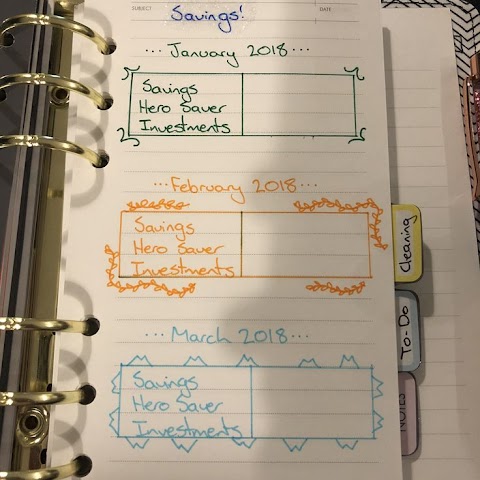 SUBJECT
DATE
Savings!
... January 2018 ...
Savings
Hero Saver
Investments
... February 2018 ...
Savings
Hero Saver
Investments
... March 2018 ...
Savings
Hero Saver
Investments
Cleaning
To-Do
NOTES